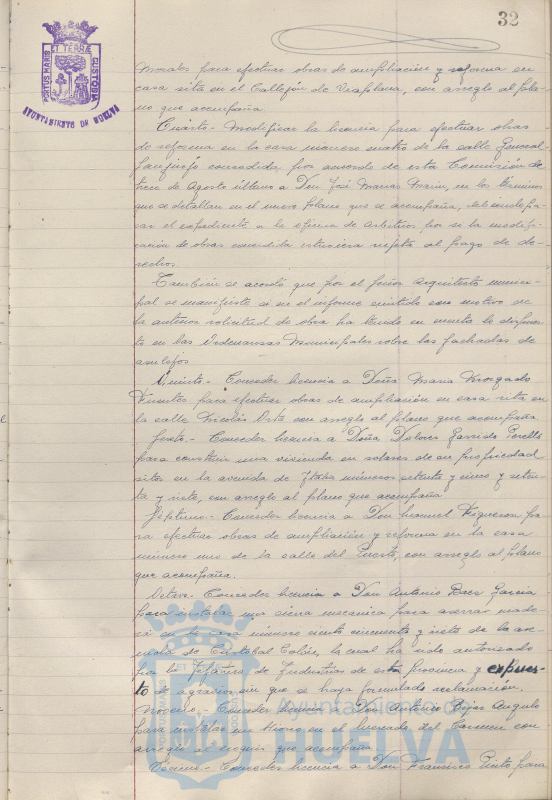 32
PORTUS MARIS ET TERRÆ CUSTODIA
AYUNTAMIENTO DE HUELVA
Morales para efectuar obras de ampliación y reforma en
casa sita en el Callejón de Viaplana, con arreglo al pla-
no que acompaña.
Cuarto.- Modificar la licencia para efectuar obras
de reforma en la casa número cuatro de la calle General
Sanjurjo concedida, por acuerdo de esta Comisión de
trece de Agosto último a Don José Marías Marín, en los términos
que se detallan en el nuevo plano que se acompaña, debiendo pa-
sar el expediente a la oficina de Arbitrios por si la modifi-
cación de obras concedida estuviera sujeta al pago de de-
rechos.
También se acordó que por el Señor Arquitecto munici-
pal se manifieste si en el informe emitido con motivo de
la anterior solicitud de obra ha tenido en cuenta lo dispues-
to en las Ordenanzas Municipales sobre las fachadas de
azulejos
Quinto.- Conceder licencia a Doña María Morgado
Fuentes para efectuar obras de ampliación en casa sita en
la calle Nicolás Orta con arreglo al plano que acompaña
Sexto.- Conceder licencia a Doña Dolores Garrido Perelló
para construir una vivienda en solares de su propiedad
sitos en la avenida de Italia números setenta y cinco y seten-
ta y siete, con arreglo al plano que acompaña
Séptimo.- Conceder licencia a Don Manuel Figueroa pa-
ra efectuar obras de ampliación y reforma en la casa
número uno de la calle del Puerto, con arreglo al plano
que acompaña.
Octavo.- Conceder licencia a Don Antonio Baez García
para instalar una sierra mecánica para aserrar made-
ra en la casa número ciento cincuenta y siete de la ave-
nida de Cristóbal Colón, la cual ha sido autorizada
por la Jefatura de Industrias de esta Provincia y expues-
to de agravios, sin que se haya formulado reclamación.
Noveno.- Conceder licencia a Don Antonio Rojas Angulo
para instalar un kiosco en el mercado del Carmen con
arreglo al croquis que acompaña
Décimo.- Conceder licencia a Don Francisco Pinto para
Ayuntamiento de
HUELVA